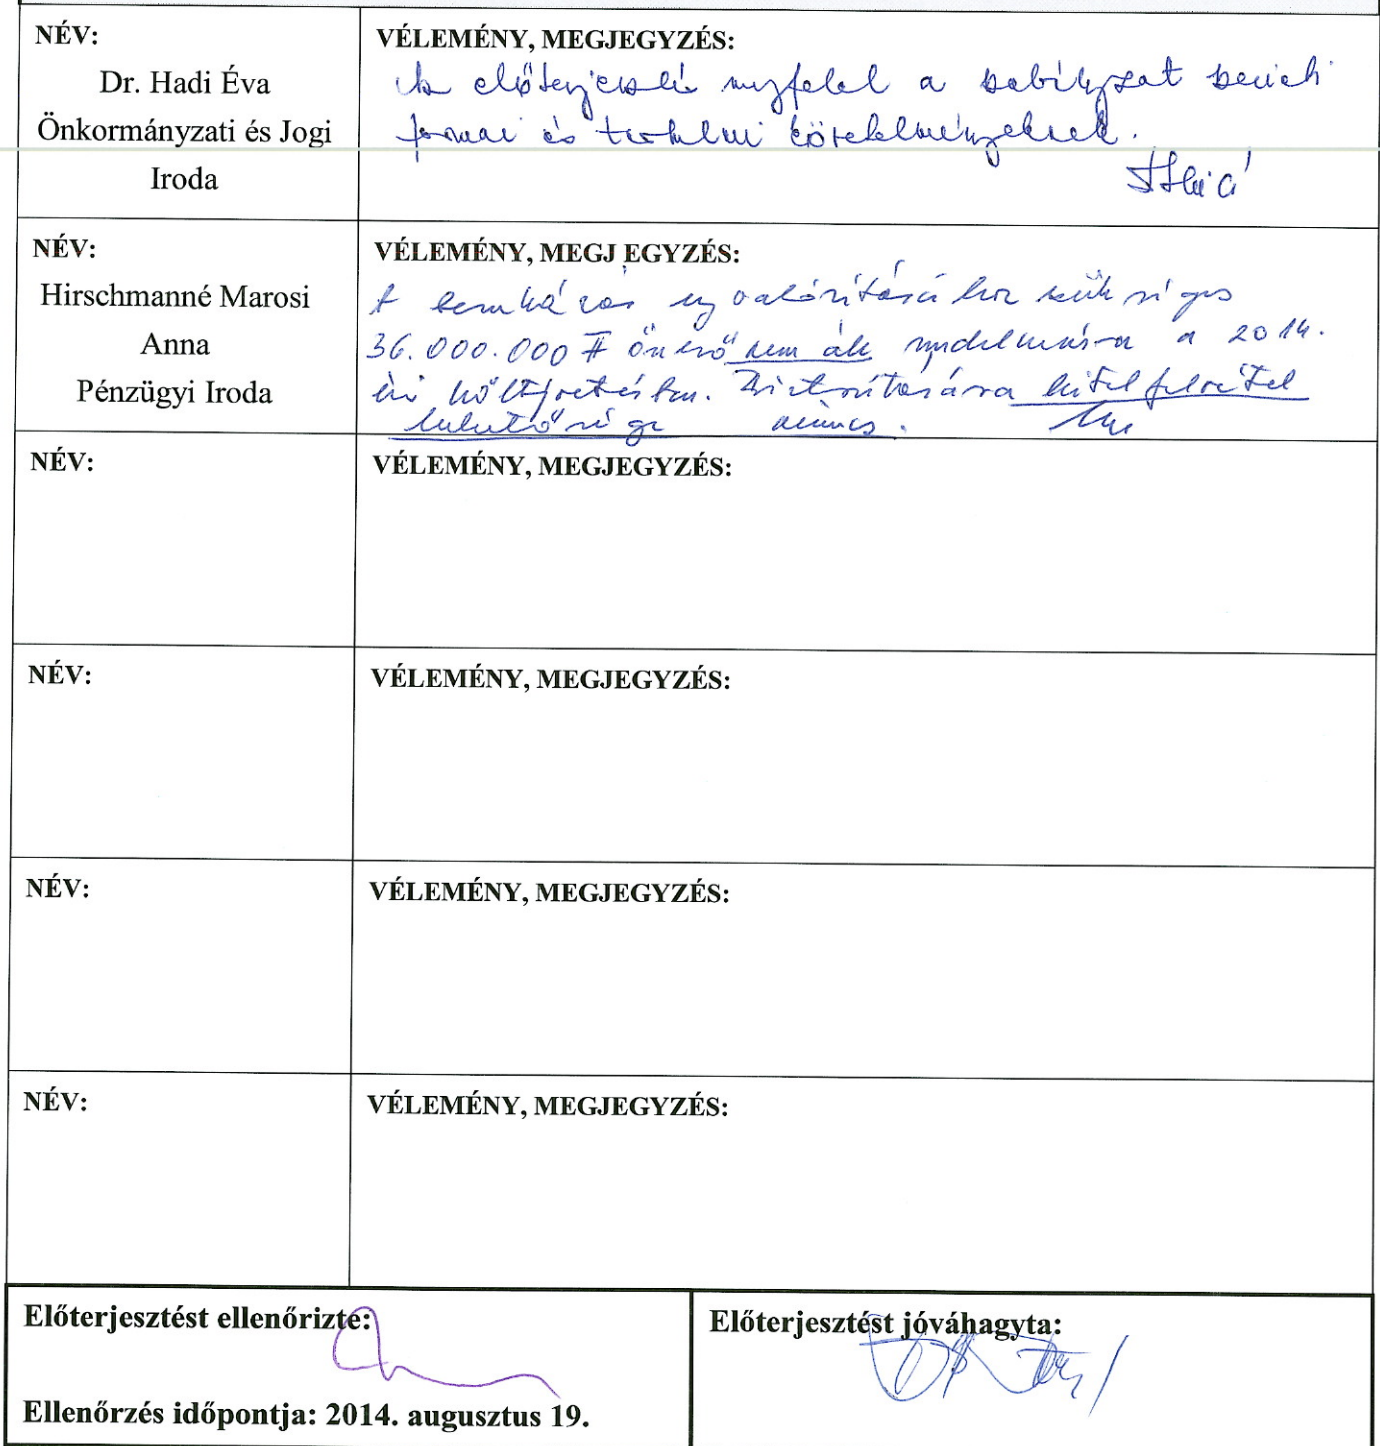 NÉV:
Dr. Hadi Éva
Önkormányzati és Jogi
Iroda
VÉLEMÉNY, MEGJEGYZÉS:
Az előterjesztés megfelel a szabályzat szerinti
formai és tartalmi követelményeknek.
NÉV:
Hirschmanné Marosi
Anna
Pénzügyi Iroda
VÉLEMÉNY, MEGJ EGYZÉS:
A beruházás megvalósításához szükséges
36.000.000 Ft önerő nem áll rendelkezésre a 2014.
évi költségvetésben. Biztosítására hitelfelvétel
lehetősége nincs.
NÉV:
VÉLEMÉNY, MEGJEGYZÉS:
NÉV:
VÉLEMÉNY, MEGJEGYZÉS:
NÉV:
VÉLEMÉNY, MEGJEGYZÉS:
NÉV:
VÉLEMÉNY, MEGJEGYZÉS:
Előterjesztést ellenőrizte:
Ellenőrzés időpontja: 2014. augusztus 19.
Előterjesztést jóváhagyta: